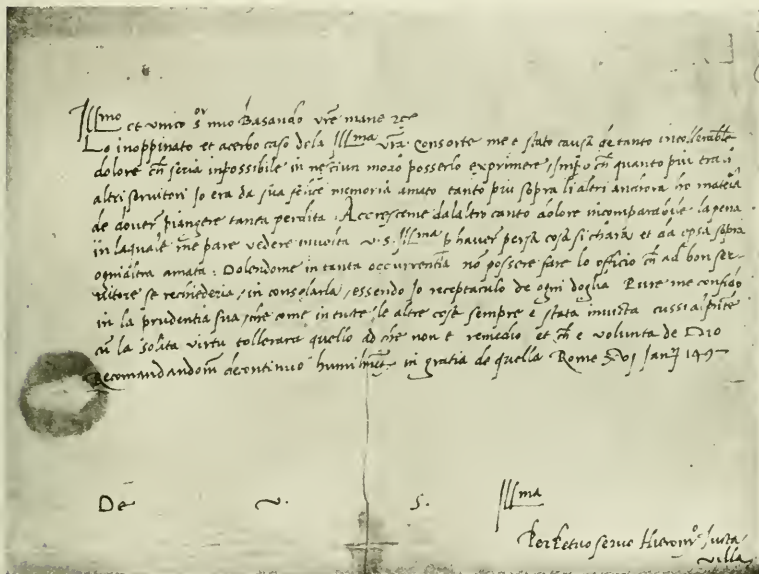 Illmo et unico Sor mio Basando vre mane
Lo inoppinato et acerbo caso dela Illma vra Consorte me e stato causa de tanto intollerabile
dolore ch seria impossibile in nesciun modo posserlo exprimere, ch quanto piu tra li
altri servitori Io era da sua felice memoria amato tanto piu sopra li altri anchora ho materia
de dover piangere tanta perdita. Accresceme dalaltro canto dolore incomparabile la pena
in laquale me pare vedere involta v. s. Illma p haver persa cosa si chara et da epsa sopra
ogni altra amata: Dolendome in tanta occurrentia no possere fare lo officio ch ad bon ser-
vitore se rechiederia, in consolarla, essendo Io receptaculo de ogni doglia Pure me confido
in la prudentia sua, che come in tute le altre cose sempre e stata invicta cussi al pnte
cu la solita virtu tollerara quello ad che non e remedio et ch e volunta de Dio
Recomandandomi de continuo humilmte in gratia de quella Rome XVI Janrij 1497
De v. s. Illma
Perpetuo servo Hieronimo Tutta
villa